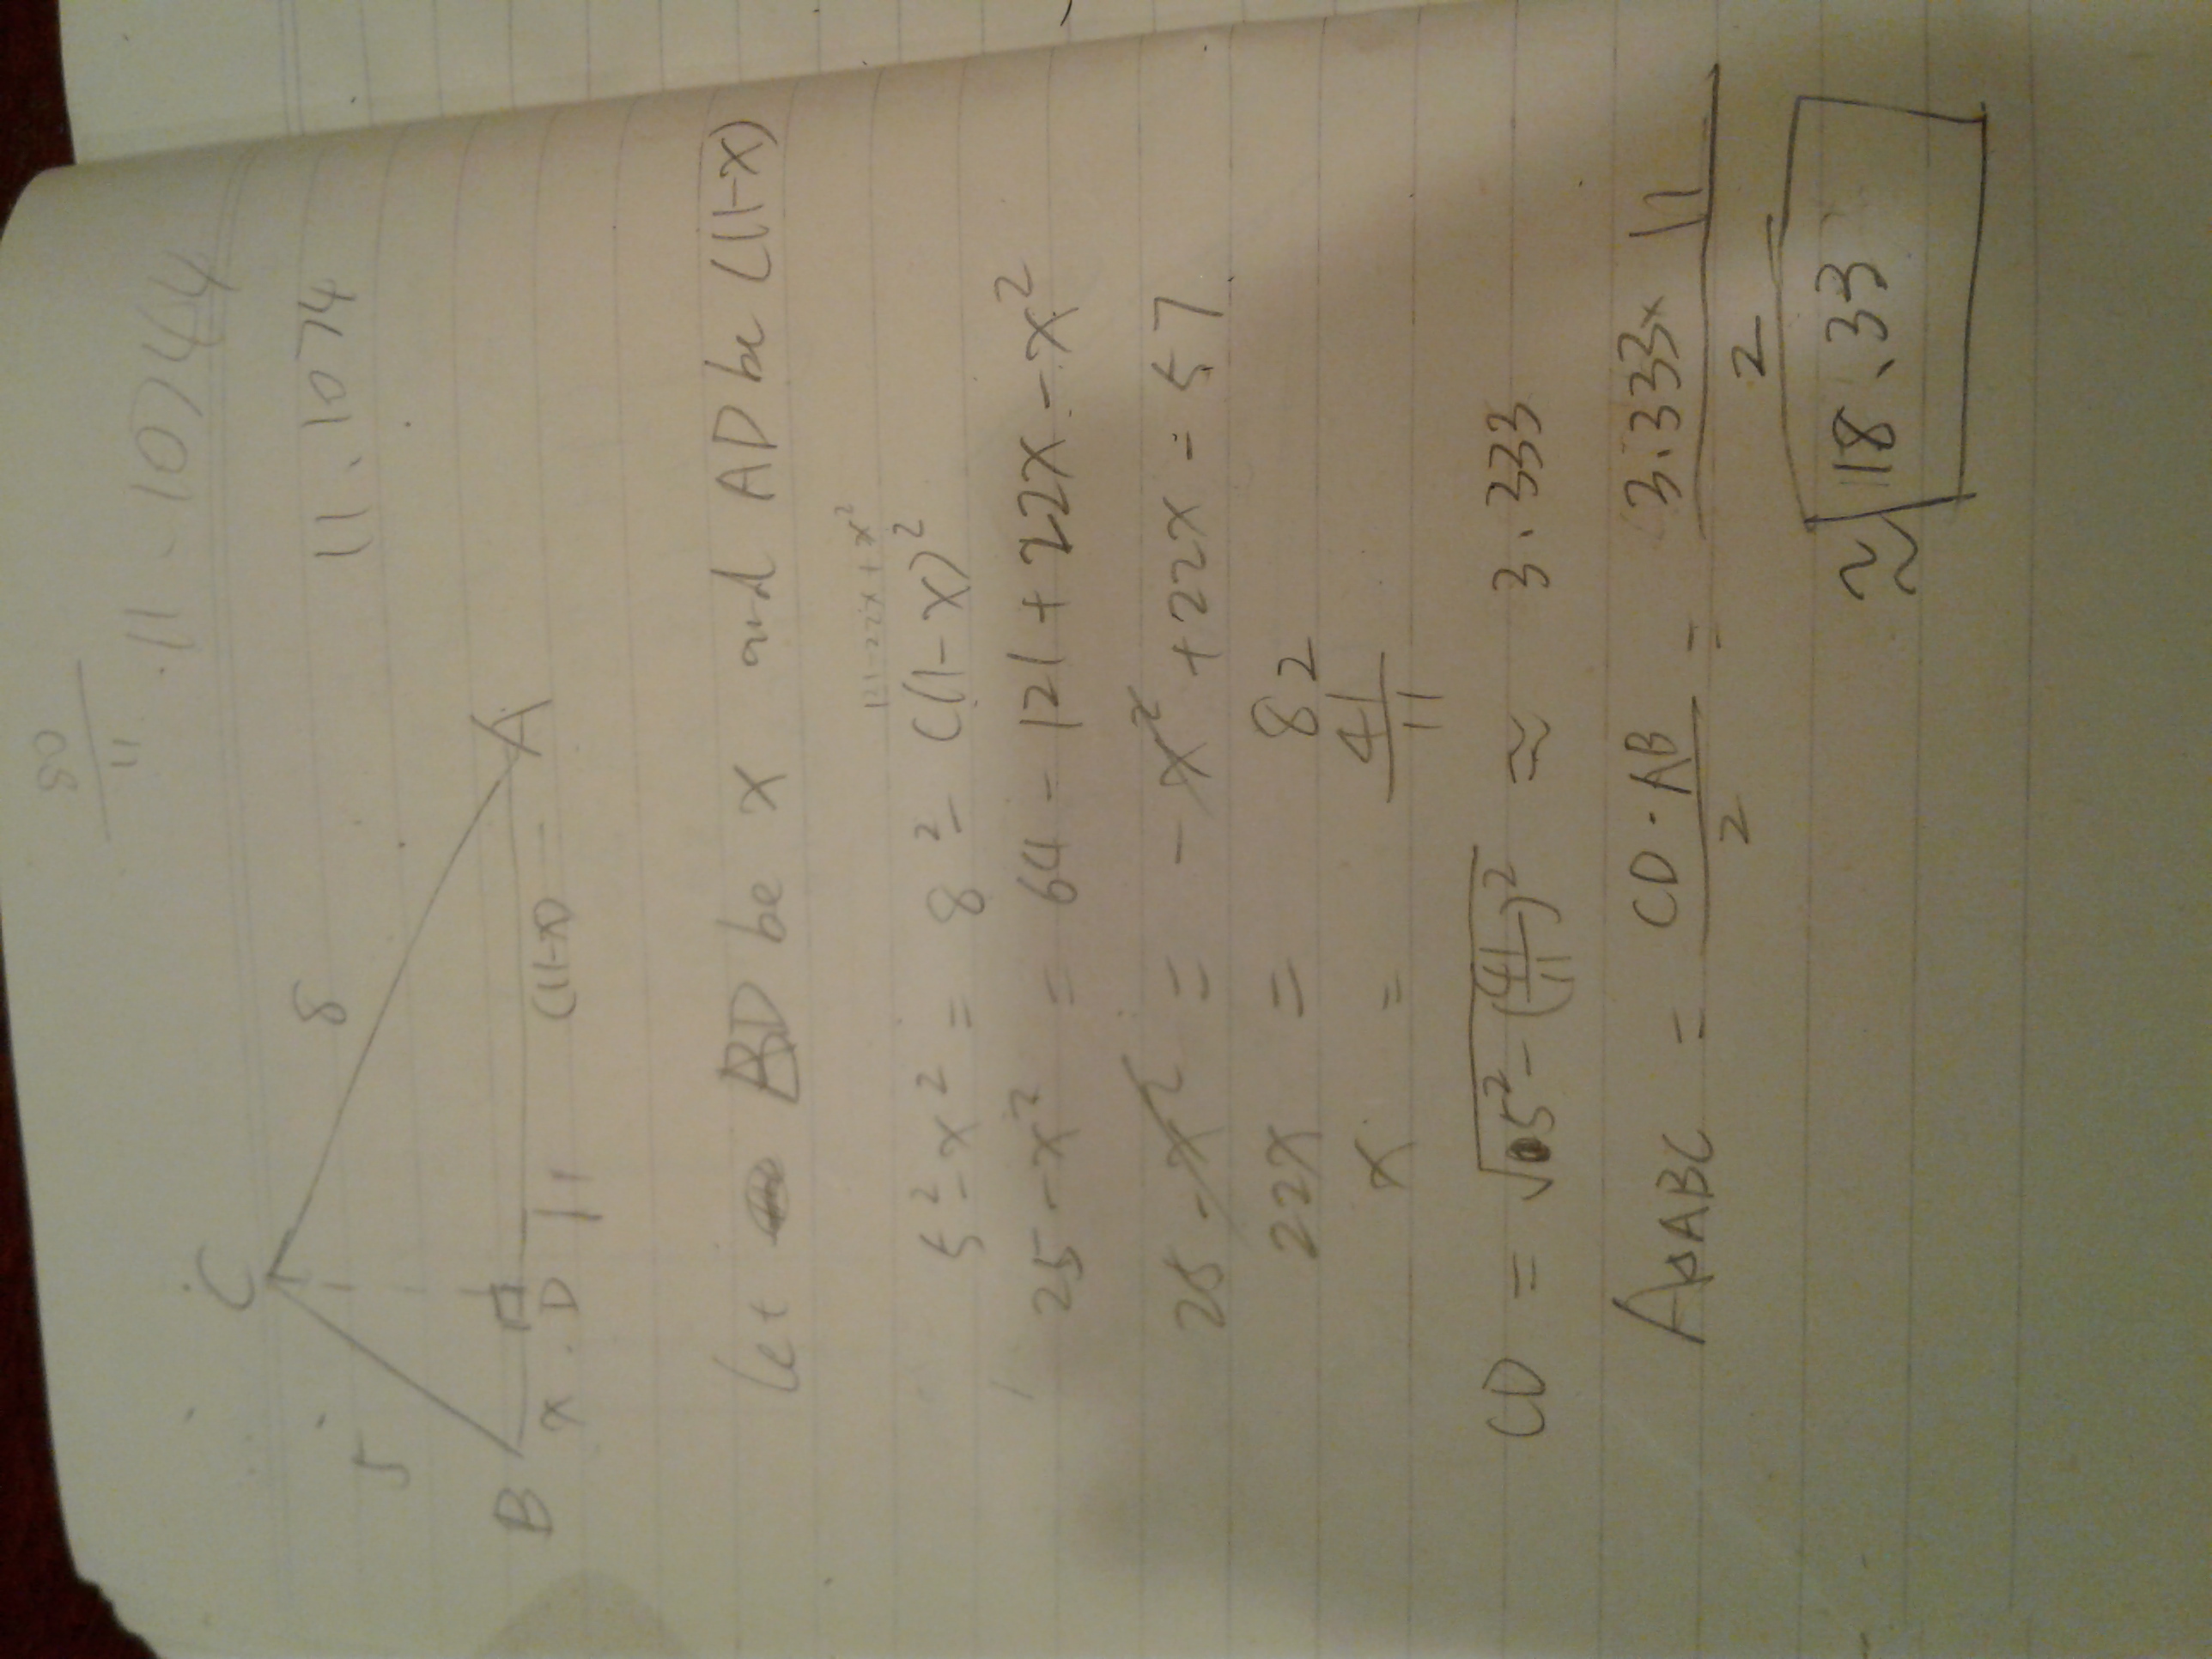 80
11
11.10744
11.1074
C
5
8
B
A
x
D
11
(11-x)
Let BD be x and AD be (11-x)
121-22x+x²
5²-x² = 8²-(11-x)²
25-x² = 64-121+22x-x²
25-x² = -x²+22x-57
22x = 82
x = 41/11
CD = √5²-(41/11)² ≈ 3.333
A△ABC = CD·AB/2 = 3.333x 11/2
≈ 18.33